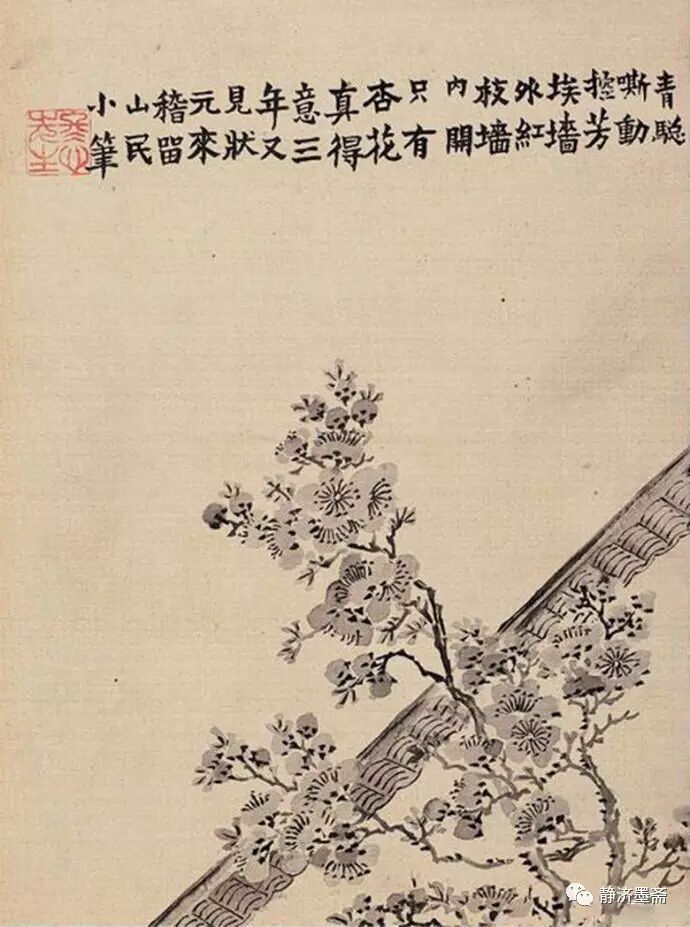 青騘
嘶動
控芳
埃墻
外紅
枝墻
内開
只有
杏花
真得
意三
年又
見狀
元來
稽留
山民
小筆
冬心先生
静济墨斋